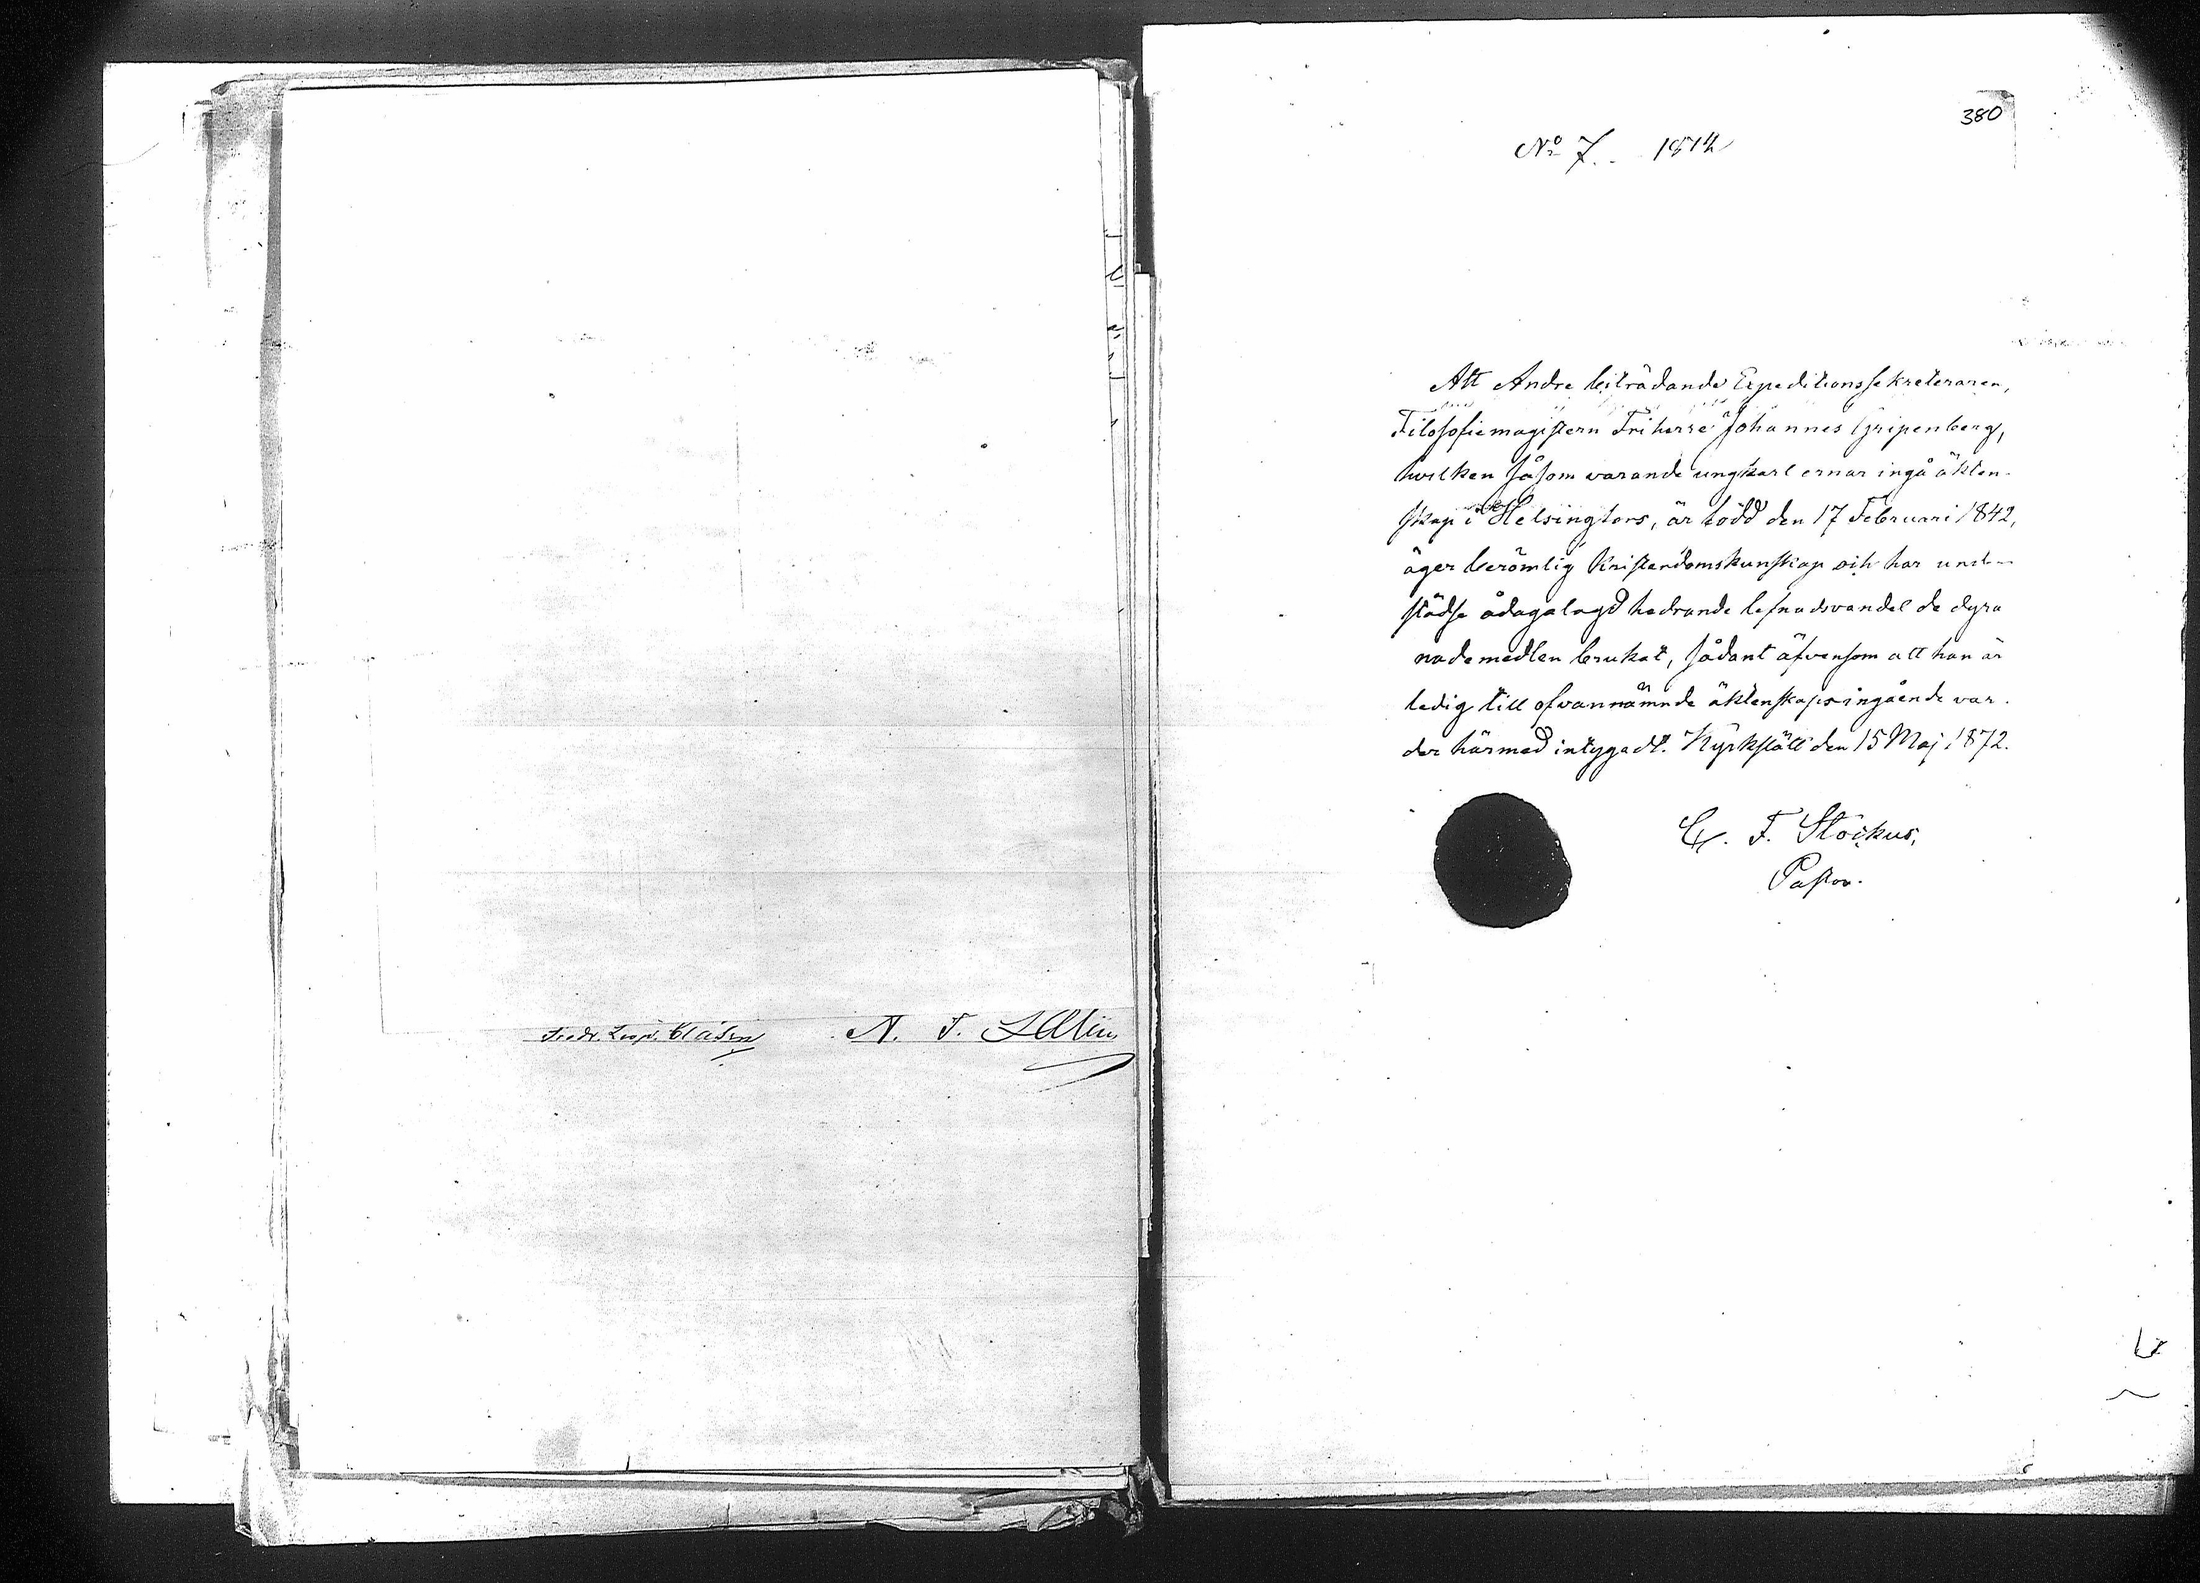 A. F.
380
No 7. 1872
Att Andre biträdande Expeditionssekreteraren,
Filosofiemagistern Friherre Johannes Gripenberg,
hvilken såsom varande ungkarl ernar ingå äkten-
skap i Helsingfors, är född den 17 Februari 1842,
äger berömlig Kristendomskunskap och har under
städse ådagalagd hedrande lefnadsvandel de dyra
nademedlen brukat, sådant äfvensom att han är
ledig till ofvannämnde äktenskapsingående var-
der härmed intygadt. Kyrkslätt den 15 Maj 1872.
C. F. Stöckus,
Pastor.